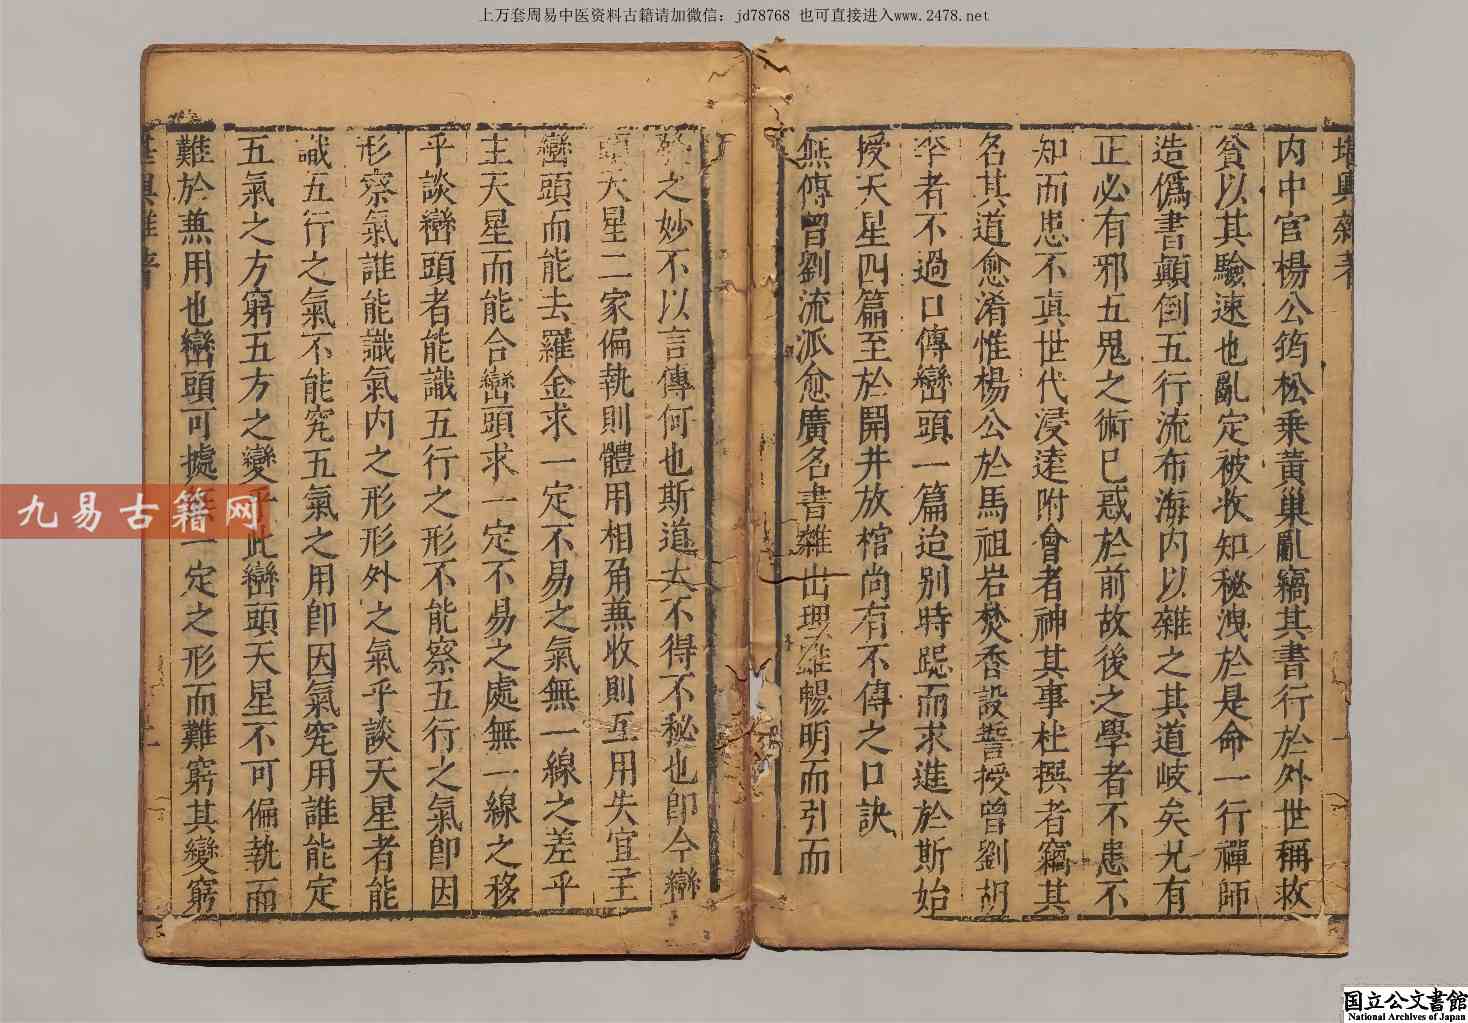 上万套周易中医资料古籍请加微信：jd78768 也可直接进入www.2478.net
堪輿雜著
內中官楊公筠松乗黃巢亂竊其書行於外世稱救
貧以其驗速也亂定被收知秘洩於是命一行禪師
造僞書顛倒五行流布海内以雜之其道岐矣兄有
正必有邪五鬼之術巳惑於前故後之學者不患不
知而患不真世代浸逺附會者神其事杜撰者竊其
名其道愈淆惟楊公於馬祖岩焚香設誓授曾劉胡
李者不過口傳巒頭一篇迨别時跽而求進於斯始
授天星四篇至於開井放棺尚有不傳之口訣
無傳曾劉流派愈廣名書雜出理雖暢明而引而
之妙不以言傳何也斯道大不得不秘也卽今巒
頭天星二家偏執則體用相角兼收則互用失宜主
巒頭而能去羅金求一定不易之氣無一線之差乎
主天星而能合巒頭求一定不易之處無一線之移
乎談巒頭者能識五行之形不能察五行之氣卽因
形察氣誰能識氣内之形形外之氣乎談天星者能
識五行之氣不能究五氣之用卽因氣究用誰能定
五氣之方窮五方之變乎此巒頭天星不可偏執而
難於兼用也巒頭可據一定之形而難窮其變窮
堪輿雜著
九易古籍网
国立公文書館
National Archives of Japan